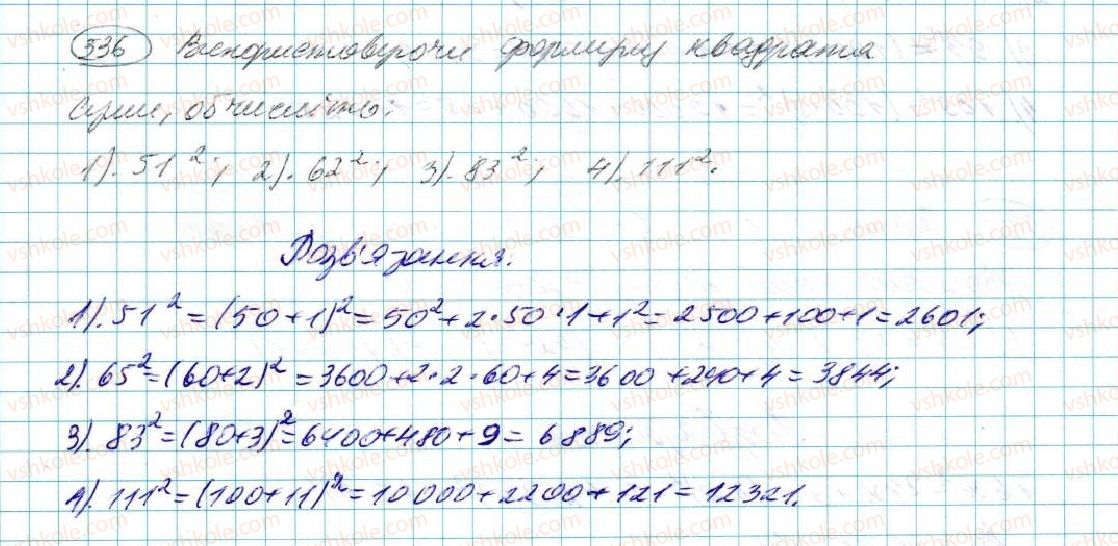 536 Використовуючи формулу квадрата
суми, обчисліть:
1). 51²; 2). 62²; 3). 83²; 4). 111².
Розв'язання.
1). 51² = (50+1)² = 50² + 2·50·1 + 1² = 2500+100+1 = 2601;
2). 65² = (60+2)² = 3600+2·2·60+4 = 3600+240+4 = 3844;
3). 83² = (80+3)² = 6400+480+9 = 6889;
4). 111² = (100+11)² = 10000+2200+121 = 12321.
vshkole.com